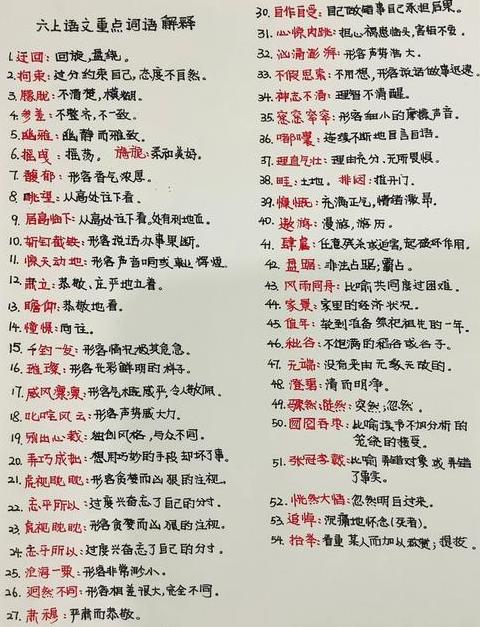 六上语文重点词语解释
1.迂回:回旋,盘绕。
2.拘束:过分约束自己,态度不自然。
3.朦胧:不清楚,模糊。
4.参差:不整齐,不一致。
5.幽雅:幽静而雅致。
6.摇曳:摇荡。 旖旎:柔和美好。
7.馥郁:形容香气浓厚。
8.眺望:从高处往下看。
9.居高临下:从高处往下看。处有利地面。
10.斩钉截铁:形容说话办事果断。
11.惊天动地:形容声音响或事业辉煌
12.肃立:恭敬、庄严地立着。
13.瞻仰:恭敬地看。
14.憧憬:向往。
15.千钧一发:形容情况极其危急。
16.璀璨:形容光彩鲜明的样子。
17.威风凛凛:形容气概威严,令人敬佩。
18.叱咤风云:形容声势威力大。
19.别出心裁:独创风格,与众不同。
20.弄巧成拙:想用巧妙的手段却坏了事。
21.虎视眈眈:形容贪婪而凶狠的注视。
22.忘乎所以:过度兴奋忘了自己的分寸。
23.虎视眈眈:形容贪婪而凶狠的注视。
24.忘乎所以:过度兴奋忘了自己的分寸。
25.沧海一粟:形容非常渺小。
26.迥然不同:形容相差很大,完全不同。
27.肃穆:严肃而恭敬。
30.自作自受:自己做错事自己承担后果。
31.心惊肉跳:担心祸患临头,害怕不安。
32.汹涌澎湃:形容声势浩大。
33.不假思索:不用想,形容说话做事迅速。
34.神志不清:理智不清醒。
35.窸窸窣窣:形容细小的摩擦声音。
36.嘟囔:连续不断地自言自语。
37.理直气壮:理由充分,无所畏惧。
38.哇:土地。 排闼:推开门。
39.慷慨:充满正气,情绪激昂。
40.遨游:漫游,游历。
41.肆虐:任意残杀或迫害,起破坏作用。
42.盘踞:非法占据;霸占。
43.风雨同舟:比喻共同度过困难。
44.家景:家里的经济状况。
45.值年:轮到准备祭祀祖先的一年。
46.秕谷:不饱满的稻谷或谷子。
47.无端:没有来由 无缘无故的。
48.澄碧:清而明净。
49.骤然;陡然:突然;忽然。
50.囫囵吞枣:比喻读书不加分析的
笼统的接受。
51.张冠李戴:比喻弄错对象或弄错
了事实。
52.恍然大悟:忽然明白过来。
53.追悼:沉痛地怀念(死者)。
54.抬举:看重某人而加以称赞;提拔。